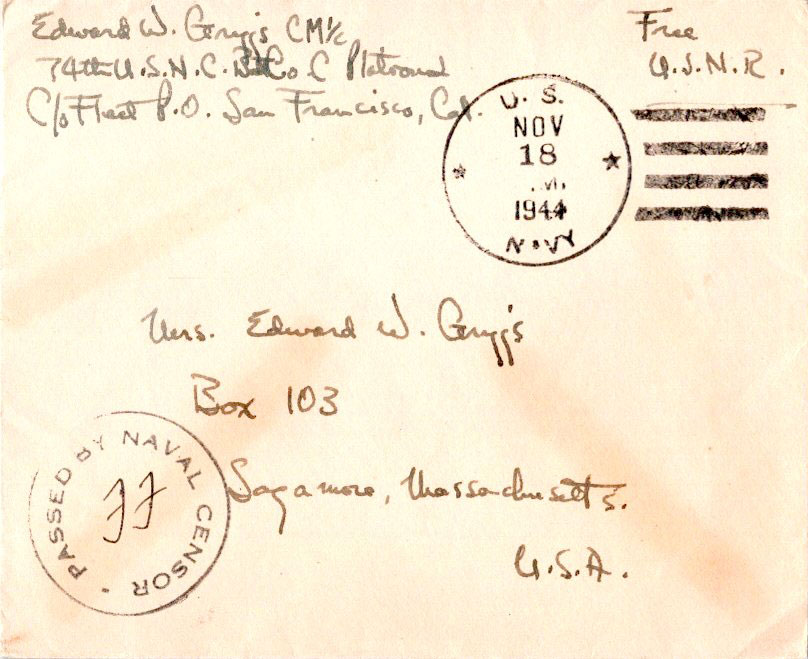 Edward W. Griggs CM1/c
74th U.S.N.C. Bt. Co C Platoon 1
C/o Fleet P.O. San Francisco, Cal.
Free
U.S.N.R.
U. S.
NOV
18
.M.
1944
NAVY
Mrs. Edward W. Griggs
Box 103
Sagamore, Massachusetts.
U.S.A.
PASSED BY NAVAL CENSOR
JJ